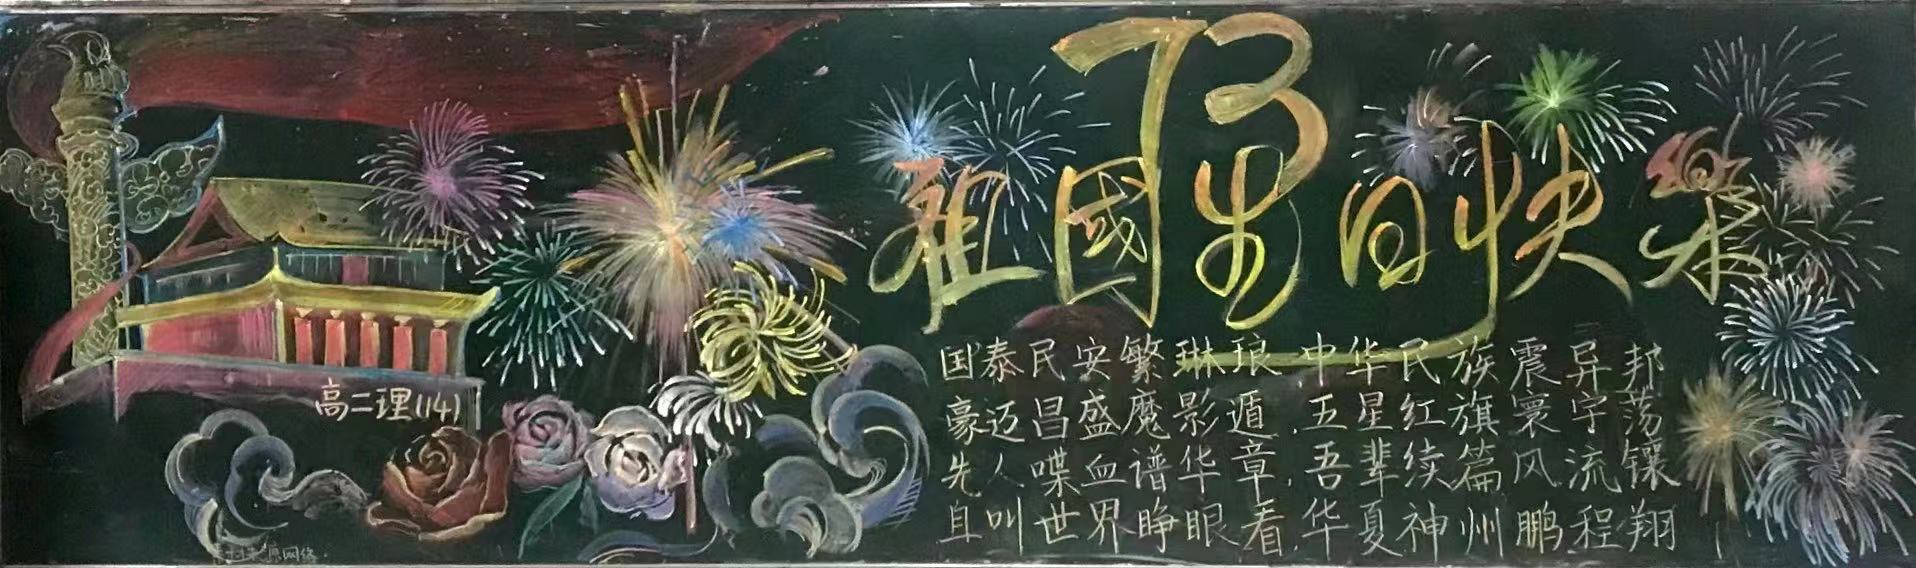 73
祖國生日快樂
国泰民安繁琳琅.中华民族震异邦
豪迈昌盛魔影遁.五星红旗寰宇荡
先人喋血谱华章.吾辈续篇风流镶
且叫世界睁眼看.华夏神州鹏程翔
高二理(14)